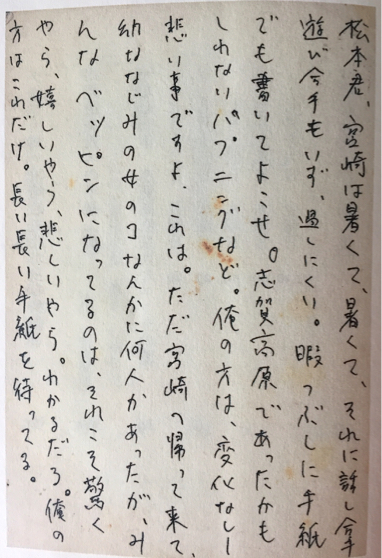 松本君、宮崎は暑くて、暑くて、それに話し拿
遊び今手もいず、過しにくい。暇つぶしに手紙
でも書いてよこせ。志賀高原であったかも
しれないハプニングなど。俺の方は、変化なし―
悲い事ですよ、これは。ただ宮崎へ帰って来て、
幼ななじみの女のコなんかに何人かあったが、み
んなベッピンになってるのは、それこそ驚く
やら、嬉しいやう、悲しいやら。わかるだろ。俺の
方はこれだけ。長い長い手紙を待ってる。